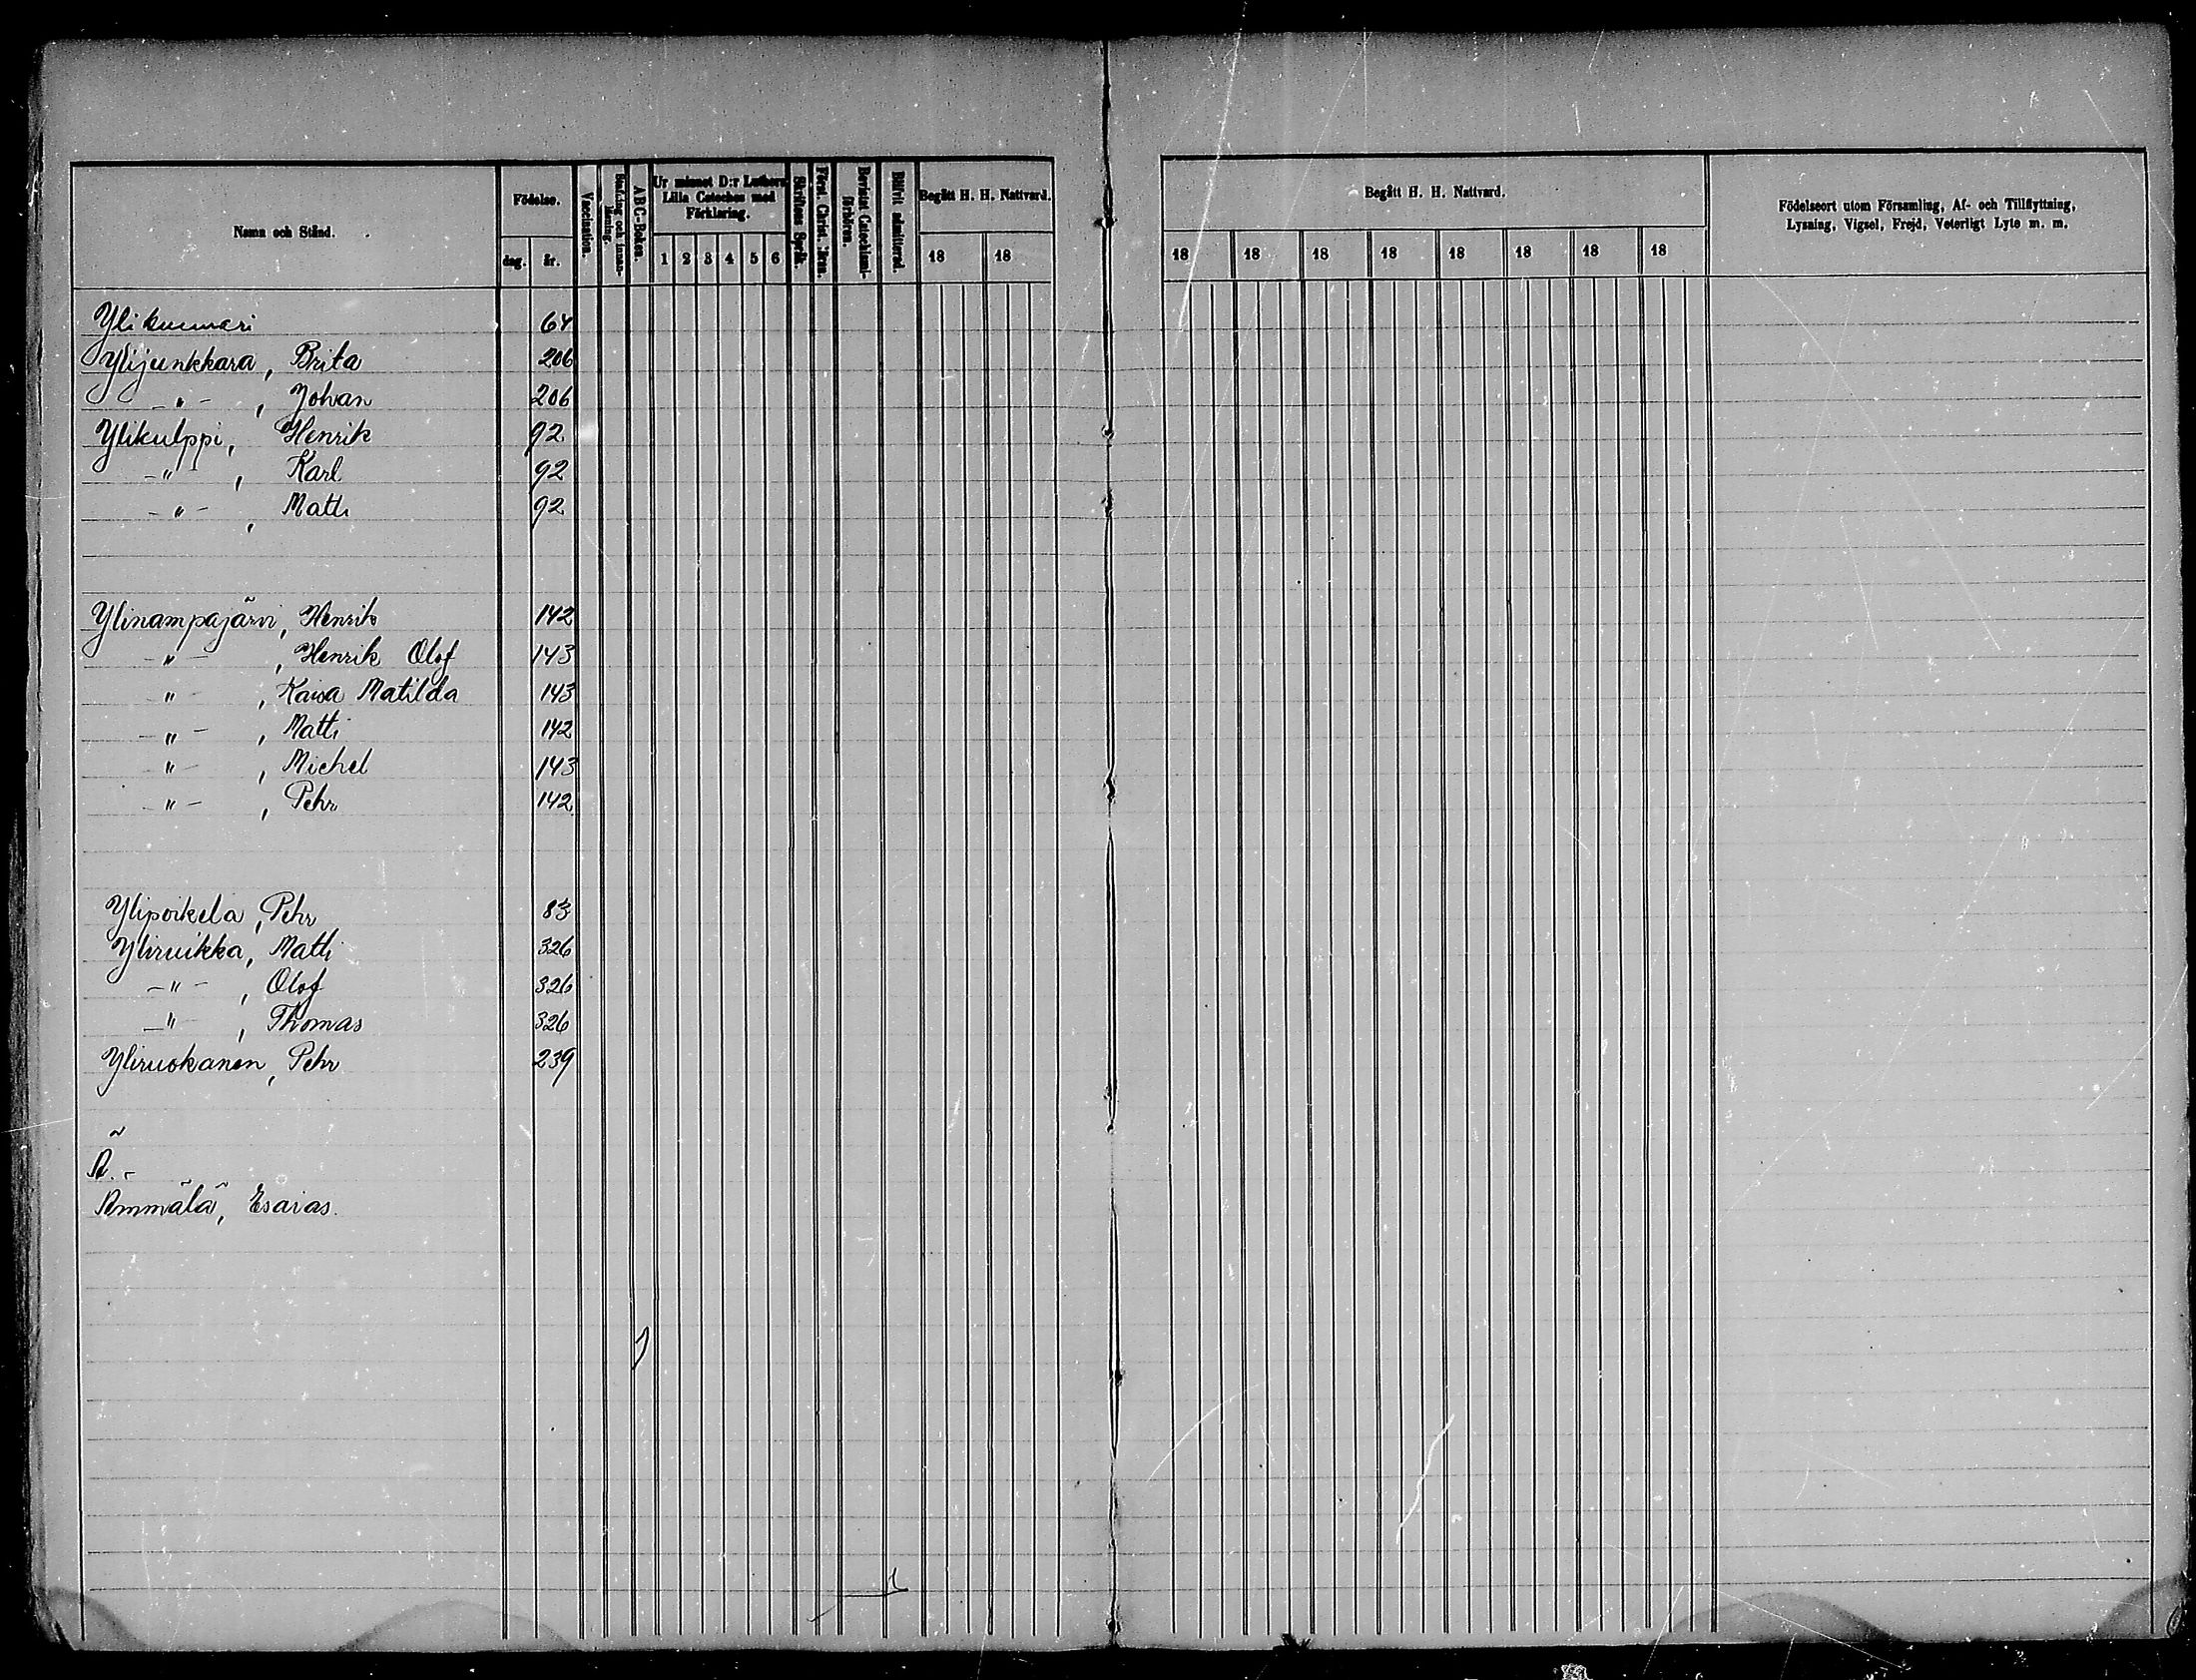 Namn och Stånd.
Födelse.
dag. år.
Vaccination.
ABC-Boken.
Ur minnet D:r Luthers Lilla Cateches med Förklaring.
1 2 3 4 5 6
Skriftens Språk.
Först. Christ. läran.
Bevistat Catechismi-förhören.
Blifvit admitterad.
Begått H. H. Nattvard.
18 18
Begått H. H. Nattvard.
18 18 18 18 18 18 18 18
Födelseort utom Församling, Af- och Tillflyttning,
Lysning, Vigsel, Frejd, Veterligt Lyte m. m.
Ylikunnari 64
Ylijunkkara, Brita 206
-"- , Johan 206
Ylikulppi, Henrik 92
-"- , Karl 92
-"- , Matti 92
Ylinampajärvi, Henrik 142
-"- , Henrik Olof 143
-"- , Kaisa Matilda 143
-"- , Matti 142
-"- , Michel 143
-"- , Pehr 142
Ylipoikela, Pehr 83
Yliruikka, Matti 326
-"- , Olof 326
-"- , Thomas 326
Yliruokanen, Pehr 239
Ä.
Ämmälä, Esaias.